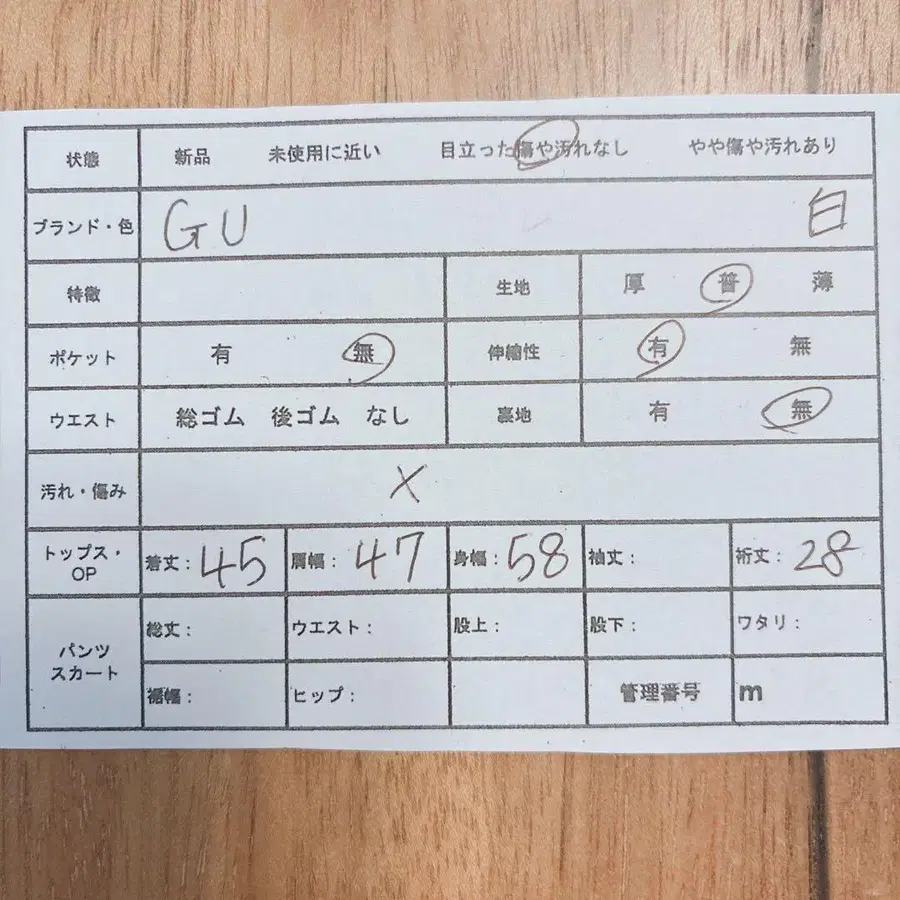 状態 新品 未使用に近い 目立った傷や汚れなし やや傷や汚れあり
ブランド・色 GU 白
特徴 生地 厚 普 薄
ポケット 有 無 伸縮性 有 無
ウエスト 総ゴム 後ゴム なし 裏地 有 無
汚れ・傷み ×
トップス・OP 着丈：45 肩幅：47 身幅：58 袖丈： 裄丈：28
パンツ スカート 総丈： ウエスト： 股上： 股下： ワタリ：
裾幅： ヒップ： 管理番号 m